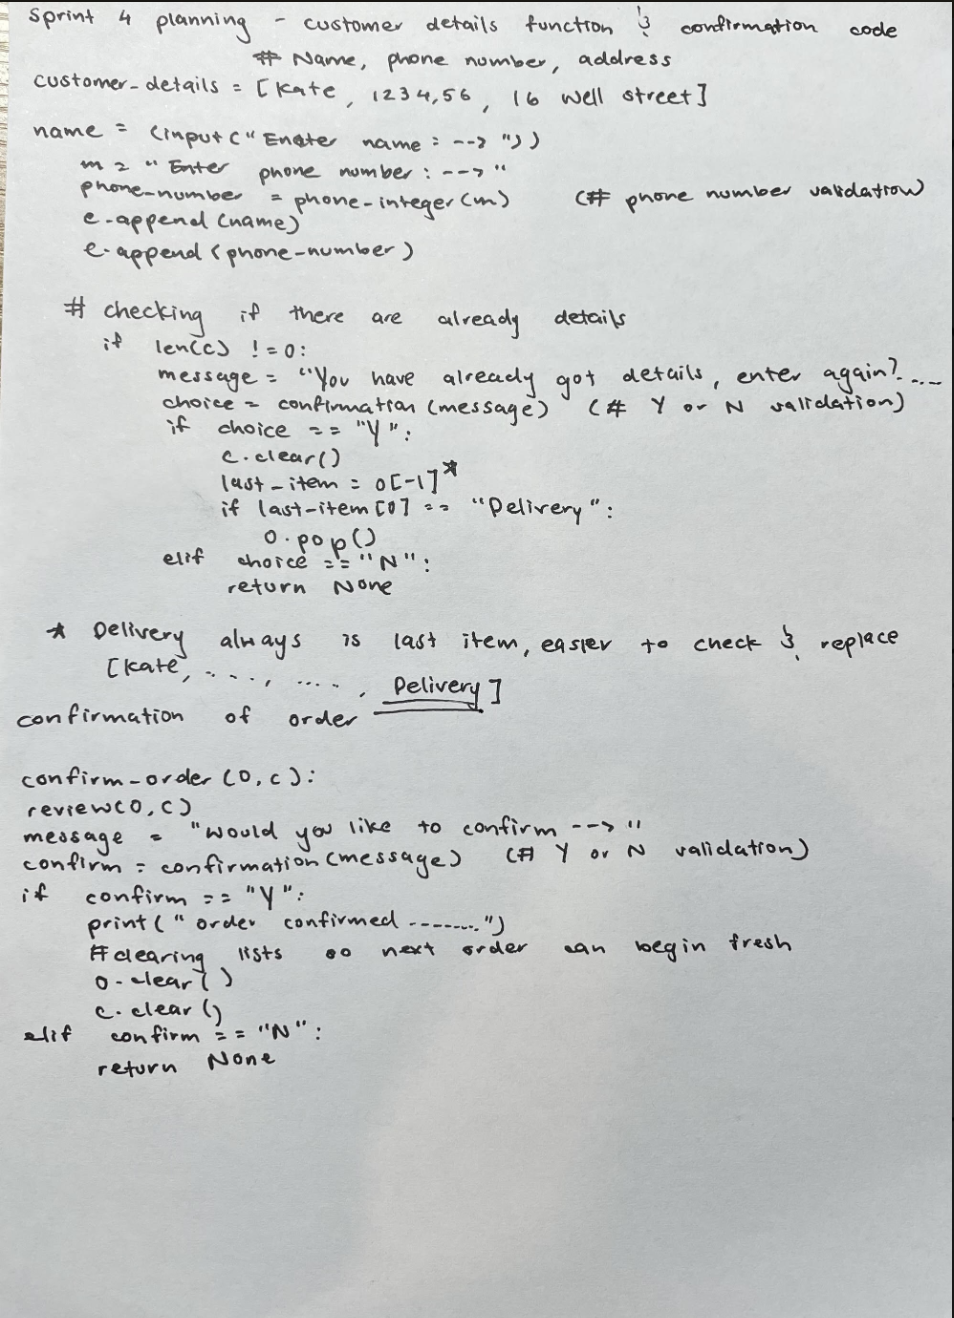 Sprint 4 planning - customer details function & confirmation code
# Name, phone number, address
customer-details = [Kate, 1234,56, 16 Well street]
name = (input("Enter name: --> "))
m = "Enter phone number: --> "
phone-number = phone-integer(m) (# phone number validation)
e.append(name)
e.append(phone-number)
# checking if there are already details
if len(c) != 0:
message = "You have already got details, enter again?....
choice = confirmation(message) (# Y or N validation)
if choice == "Y":
c.clear()
last-item = o[-1]*
if last-item[0] == "Delivery":
o.pop()
elif choice == "N":
return None
* Delivery always is last item, easier to check & replace
[Kate, ...., ...., Delivery]
confirmation of order
confirm-order(o,c):
review(o,c)
message = "Would you like to confirm --> "
confirm = confirmation(message) (# Y or N validation)
if confirm == "Y":
print(" order confirmed --------")
#clearing lists so next order can begin fresh
o.clear()
c.clear()
elif confirm == "N":
return None